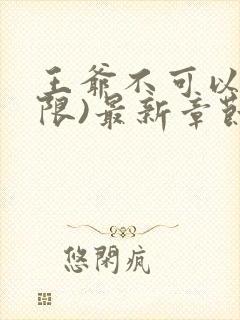 王爷不可以
限)最新章节
悠閑疯